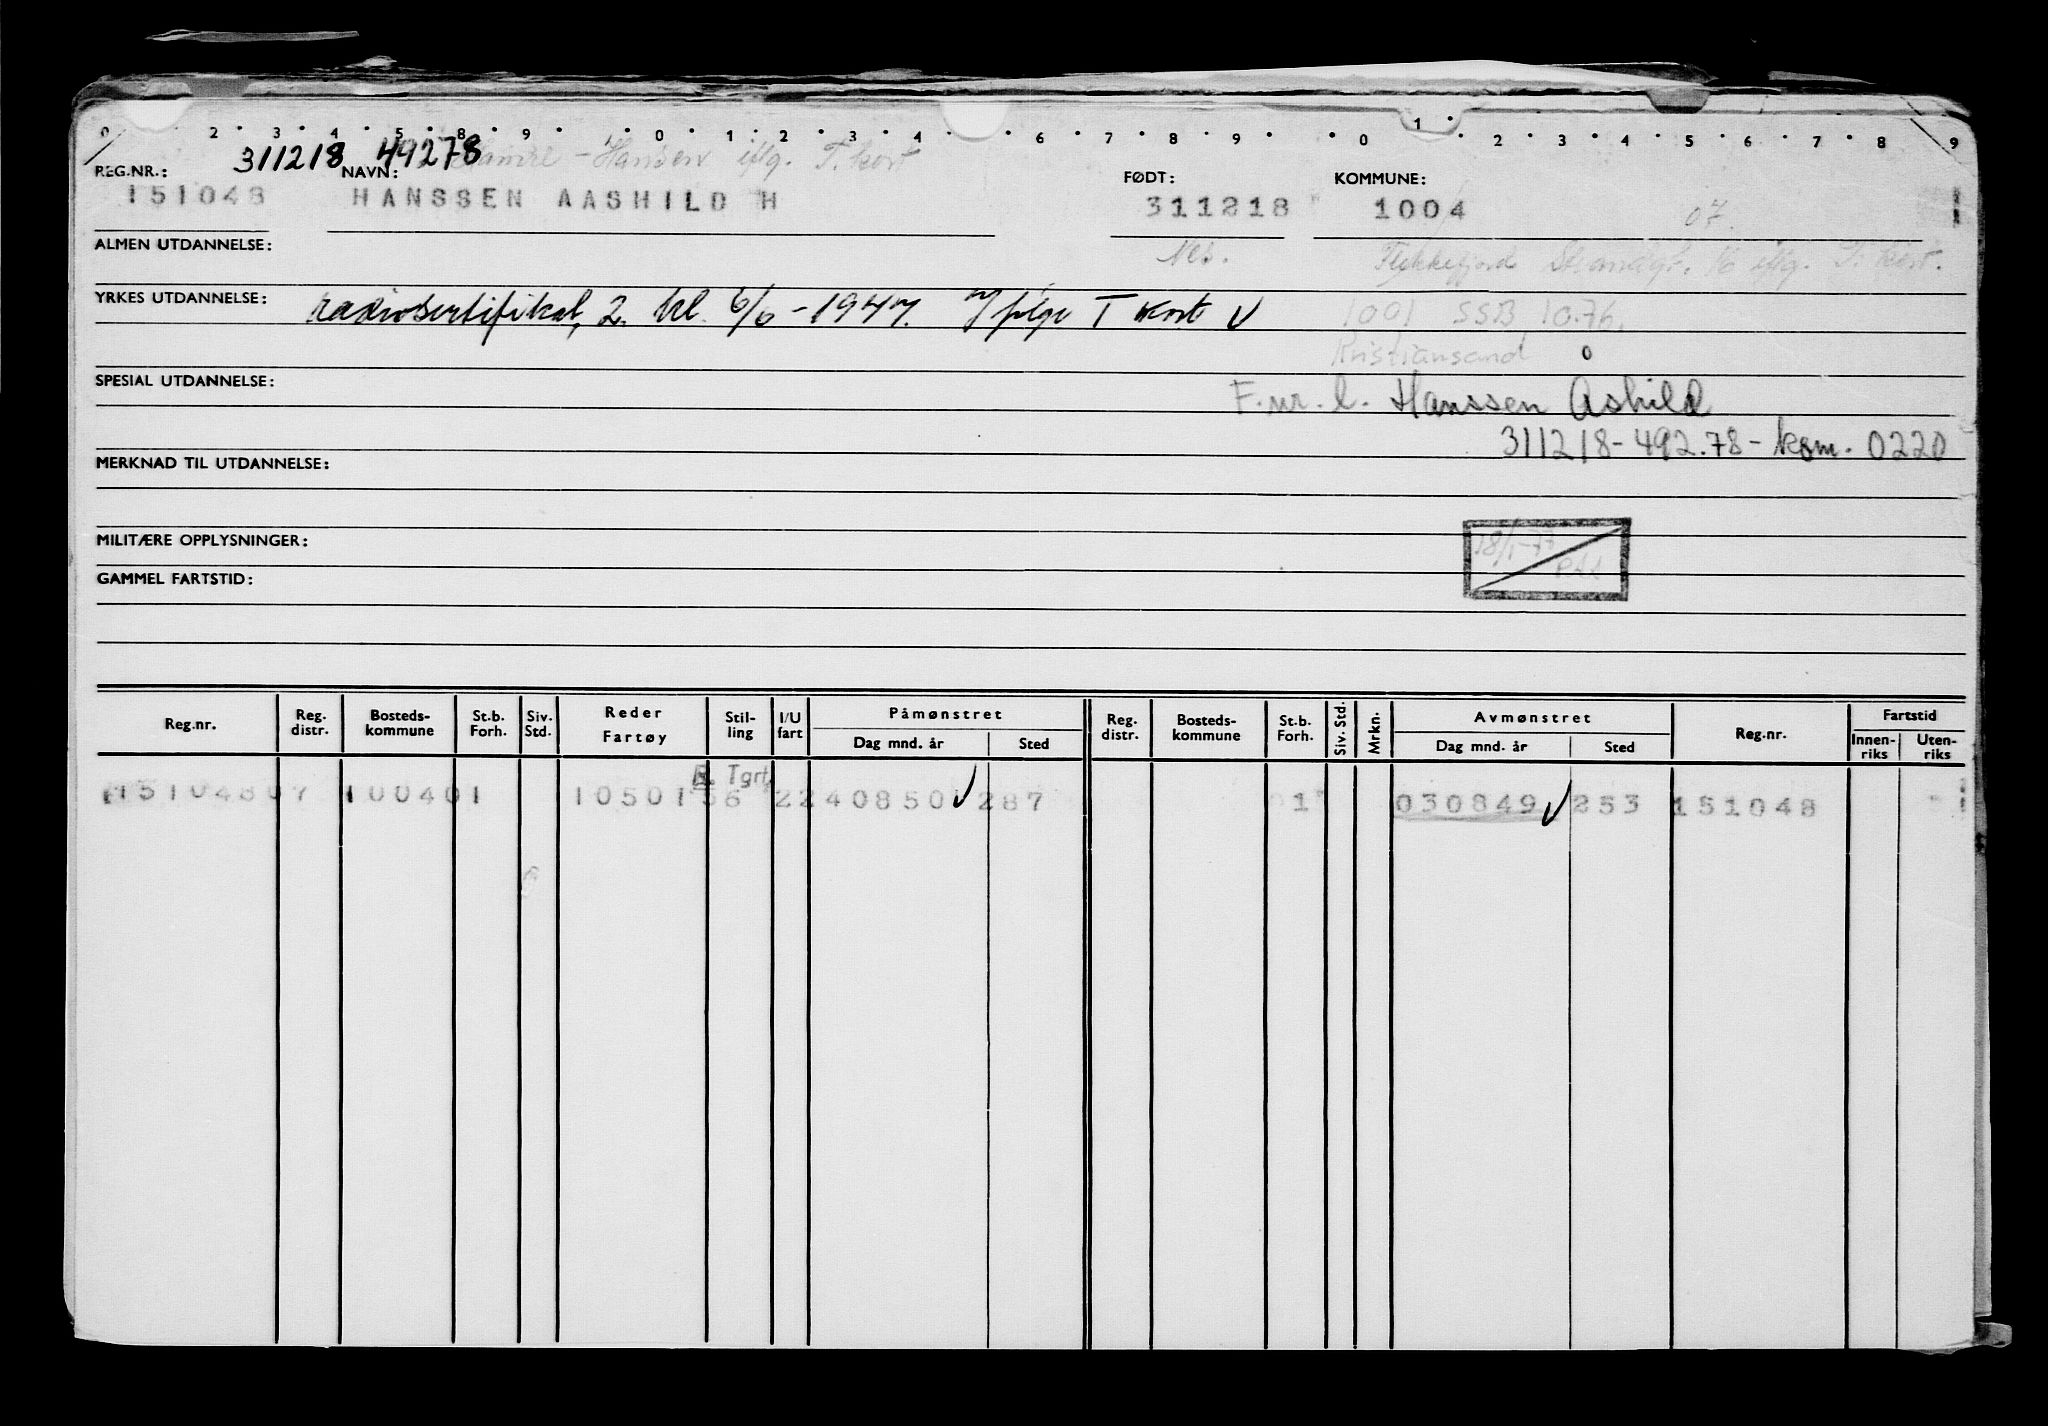 0 2 3 4 5 8 9 0 1 2 3 4 6 7 8 9 0 1 2 3 4 5 6 7 8 9
311218 49278 - Hansen iflg. T. kort
REG.NR.: NAVN: FØDT: KOMMUNE:
151048 HANSSEN AASHILD H 311218 1004 07.
ALMEN UTDANNELSE: Nes. Flekkefjord Strandgt. 16 iflg. T. kort.
YRKES UTDANNELSE: radiosertifikat, 2. kl. 6/6 - 1947. Ifølge T kort V 1001 SSB 10.76.
Kristiansand
SPESIAL UTDANNELSE: F.nr. l. Hanssen Åshild
311218-492.78- kom. 0220
MERKNAD TIL UTDANNELSE:
MILITÆRE OPPLYSNINGER: 18/1-77
GAMMEL FARTSTID:
Reg.nr. Reg. distr. Bosteds-kommune St.b. Forh. Siv. Std. Reder Fartøy Stil-ling I/U fart Påmønstret Dag mnd. år Sted Reg. distr. Bosteds-kommune St.b. Forh. Siv. Std. Mrkn. Avmønstret Dag mnd. år Sted Reg.nr. Fartstid Innen-riks Uten-riks
R. Tgrt.
151048 07 1004 01 10501 56 2 240850 287 1 030849 253 151048